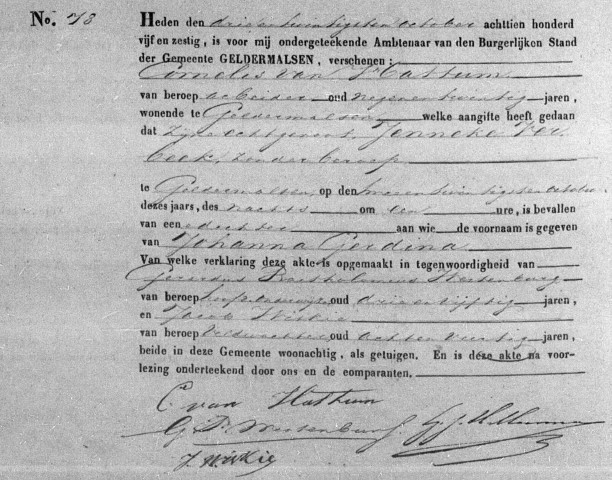 No. 78 Heden den drie en twintigsten October achttien honderd
vijf en zestig, is voor mij ondergeteekende Ambtenaar van den Burgerlijken Stand
der Gemeente GELDERMALSEN, verschenen:
Cornelis van Hattum
van beroep arbeider oud negenentwintig jaren,
wonende te Geldermalsen welke aangifte heeft gedaan
dat zijne echtgenoote Jenneke Ver
beek, zonder beroep
te Geldermalsen, op den twee en twintigsten october
dezes jaars, des nachts om een ure, is bevallen
van eene dochter aan wie de voornaam is gegeven
van Johanna Gerdina
Van welke verklaring deze akte is opgemaakt in tegenwoordigheid van
Gerardus Bartholomeus Westenburg
van beroep oud drie en vijftig jaren,
en Jacob
van beroep Veldwachter oud acht en veertig jaren,
beide in deze Gemeente woonachtig, als getuigen. En is deze akte na voor-
lezing onderteekend door ons en de comparanten.
C. van Hattum
G. B. Westenburg
J.